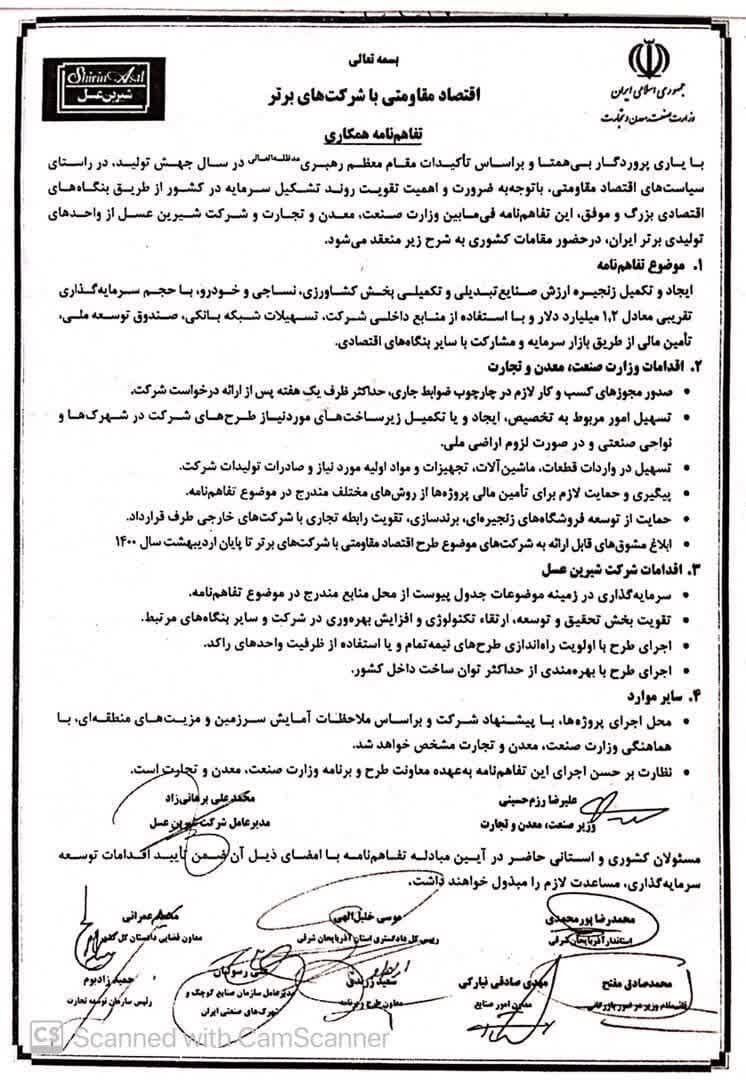 بسمه تعالی
جمهوری اسلامی ایران
وزارت صنعت، معدن و تجارت
Shirin Asal
شیرین عسل
اقتصاد مقاومتی با شرکت‌های برتر
تفاهم‌نامه همکاری
با یاری پروردگار بی‌همتا و براساس تأکیدات مقام معظم رهبری مدظله‌العالی در سال جهش تولید، در راستای
سیاست‌های اقتصاد مقاومتی، باتوجه‌به ضرورت و اهمیت تقویت روند تشکیل سرمایه در کشور از طریق بنگاه‌های
اقتصادی بزرگ و موفق، این تفاهم‌نامه فی‌مابین وزارت صنعت، معدن و تجارت و شرکت شیرین عسل از واحدهای
تولیدی برتر ایران، درحضور مقامات کشوری به شرح زیر منعقد می‌شود.
۱. موضوع تفاهم‌نامه
ایجاد و تکمیل زنجیره ارزش صنایع‌تبدیلی و تکمیلی بخش کشاورزی، نساجی و خودرو، با حجم سرمایه‌گذاری
تقریبی معادل ۱,۲ میلیارد دلار و با استفاده از منابع داخلی شرکت، تسهیلات شبکه بانکی، صندوق توسعه ملی،
تأمین مالی از طریق بازار سرمایه و مشارکت با سایر بنگاه‌های اقتصادی.
۲. اقدامات وزارت صنعت، معدن و تجارت
• صدور مجوزهای کسب و کار لازم در چارچوب ضوابط جاری، حداکثر ظرف یک هفته پس از ارائه درخواست شرکت.
• تسهیل امور مربوط به تخصیص، ایجاد و یا تکمیل زیرساخت‌های موردنیاز طرح‌های شرکت در شهرک‌ها و
نواحی صنعتی و در صورت لزوم اراضی ملی.
• تسهیل در واردات قطعات، ماشین‌آلات، تجهیزات و مواد اولیه مورد نیاز و صادرات تولیدات شرکت.
• پیگیری و حمایت لازم برای تأمین مالی پروژه‌ها از روش‌های مختلف مندرج در موضوع تفاهم‌نامه.
• حمایت از توسعه فروشگاه‌های زنجیره‌ای، برندسازی، تقویت رابطه تجاری با شرکت‌های خارجی طرف قرارداد.
• ابلاغ مشوق‌های قابل ارائه به شرکت‌های موضوع طرح اقتصاد مقاومتی با شرکت‌های برتر تا پایان اردیبهشت سال ۱۴۰۰
۳. اقدامات شرکت شیرین عسل
• سرمایه‌گذاری در زمینه موضوعات جدول پیوست از محل منابع مندرج در موضوع تفاهم‌نامه.
• تقویت بخش تحقیق و توسعه، ارتقاء تکنولوژی و افزایش بهره‌وری در شرکت و سایر بنگاه‌های مرتبط.
• اجرای طرح با اولویت راه‌اندازی طرح‌های نیمه‌تمام و یا استفاده از ظرفیت واحدهای راکد.
• اجرای طرح با بهره‌مندی از حداکثر توان ساخت داخل کشور.
۴. سایر موارد
• محل اجرای پروژه‌ها، با پیشنهاد شرکت و براساس ملاحظات آمایش سرزمین و مزیت‌های منطقه‌ای، با
هماهنگی وزارت صنعت، معدن و تجارت مشخص خواهد شد.
• نظارت بر حسن اجرای این تفاهم‌نامه به‌عهده معاونت طرح و برنامه وزارت صنعت، معدن و تجارت است.
علیرضا رزم‌حسینی محمدعلی برهانی‌زاد
وزیر صنعت، معدن و تجارت مدیرعامل شرکت شیرین عسل
مسئولان کشوری و استانی حاضر در آیین مبادله تفاهم‌نامه با امضای ذیل آن ضمن تأیید اقدامات توسعه
سرمایه‌گذاری، مساعدت لازم را مبذول خواهند داشت.
محمدرضا پورمحمدی موسی خلیل‌الهی عمرانی
استاندار آذربایجان شرقی رییس کل دادگستری استان آذربایجان شرقی معاون قضایی دادستان کل کشور
محمدصادق مفتح مهدی صادقی نیارکی سعید زرندی علی رسولیان حمید زادبوم
قائم‌مقام وزیر در امور بازرگانی معاون امور صنایع معاون طرح و برنامه مدیرعامل سازمان صنایع کوچک و رئیس سازمان توسعه تجارت
شهرک‌های صنعتی ایران
CS Scanned with CamScanner